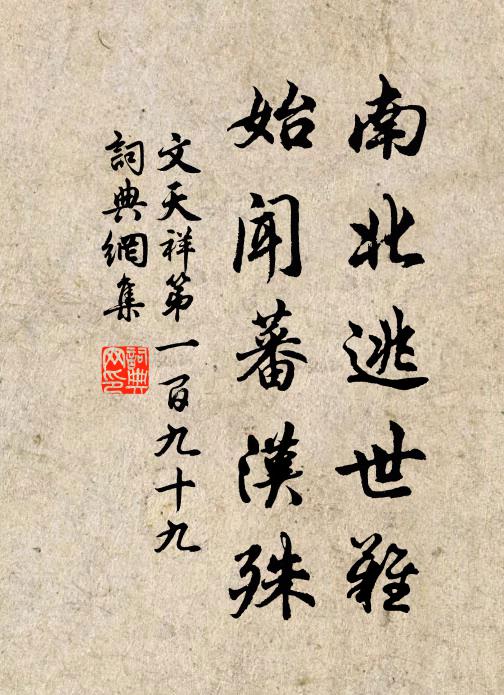 南北逃世難
始聞蕃漢殊
文天祥第一百九十九
詞典網集
詞典
网印